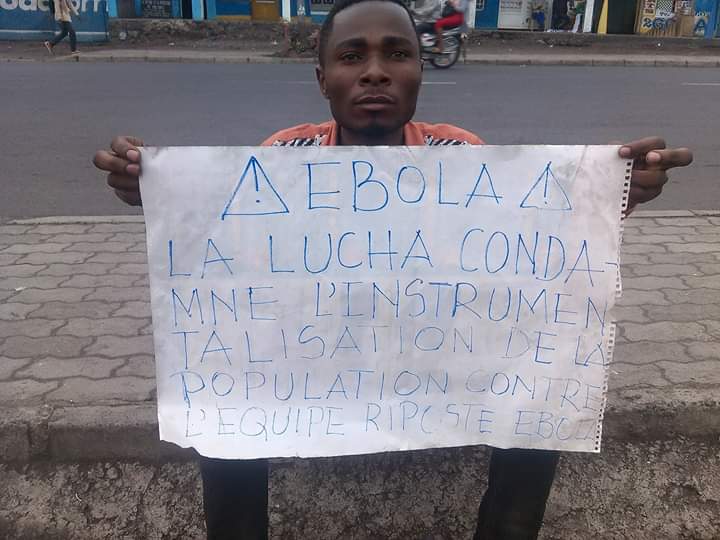 EBOLA
LA LUCHA CONDA-
MNE L'INSTRUMEN
TALISATION DE LA
POPULATION CONTRE
L'EQUIPE RIPOSTE EBOLA